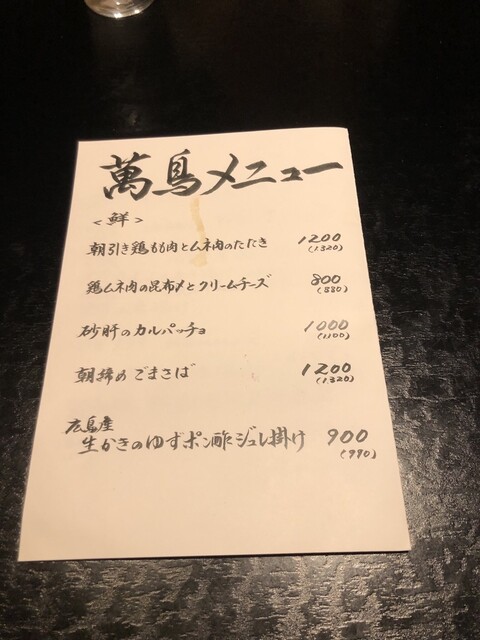 萬鳥メニュー
<鮮>
朝引き鶏もも肉とムネ肉のたたき 1200
(1320)
鶏ムネ肉の昆布〆とクリームチーズ 800
(880)
砂肝のカルパッチョ 1000
(1100)
朝締め ごまさば 1200
(1320)
広島産
生かきのゆずポン酢ジュレ掛け 900
(990)